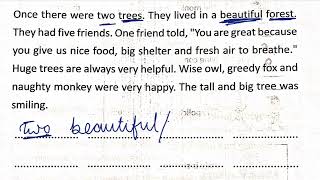 Once there were two trees. They lived in a beautiful forest.
They had five friends. One friend told, "You are great because
you give us nice food, big shelter and fresh air to breathe."
Huge trees are always very helpful. Wise owl, greedy fox and
naughty monkey were very happy. The tall and big tree was
smiling.
two beautiful/